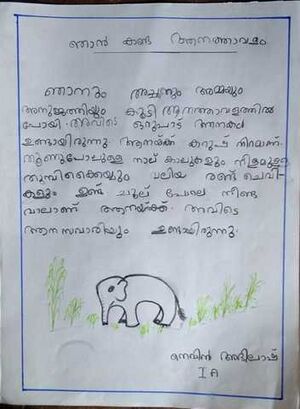 ഞാൻ കണ്ട ആനത്താവളം
ഞാനും അച്ഛനും അമ്മയും
അനുജത്തിയും കൂടി ആനത്താവളത്തിൽ
പോയി. അവിടെ ഒരുപാട് ആനകൾ
ഉണ്ടായിരുന്നു. ആനയ്ക്ക് കറുപ്പു നിറമാണ്.
തൂണുപോലുള്ള നാല് കാലുകളും നീളമുള്ള
തുമ്പിക്കൈയും വലിയ രണ്ട് ചെവി-
കളും ഉണ്ട്. ചൂല് പോലെ നീണ്ട
വാലാണ് ആനയ്ക്ക്. അവിടെ
ആന സവാരിയും ഉണ്ടായിരുന്നു.
നെവിൻ അഭിലാഷ്
I A